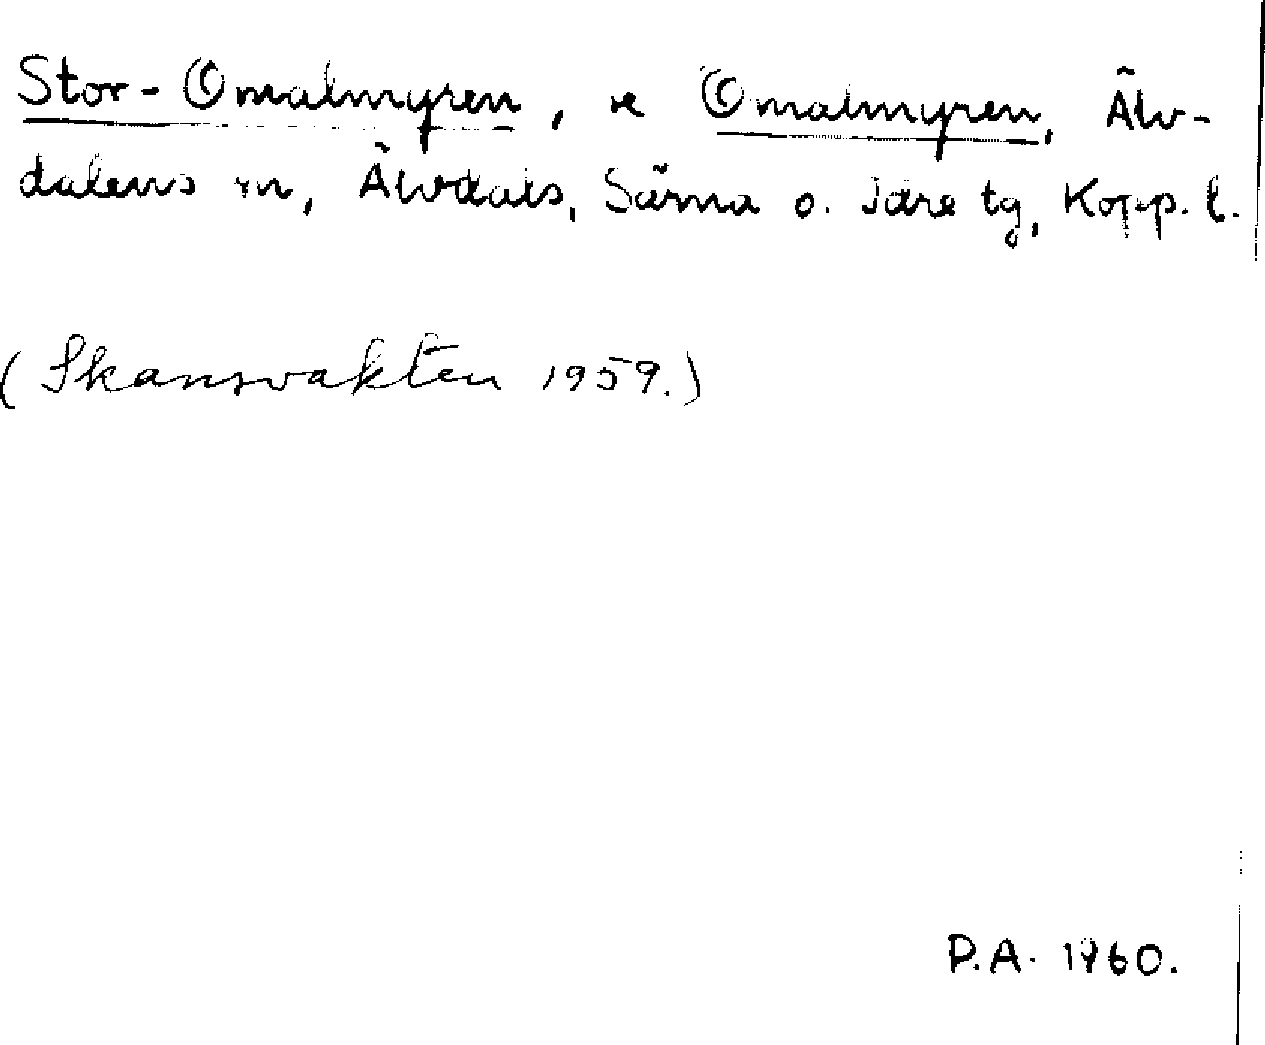 Stor-Omalmyren, se Omalmyren, Älv-
dalens sn, Älvdals, Särna o. Idre tg, Kopp. l.
(Skansvakten 1959.)
P.A. 1960.